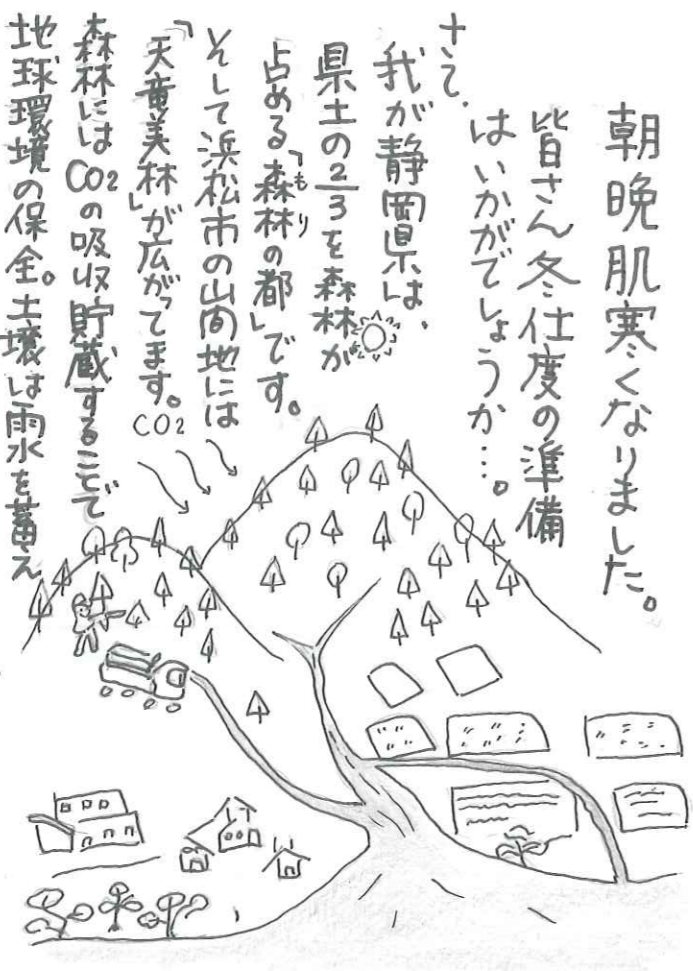 朝晩肌寒くなりました。
皆さん冬仕度の準備
はいかがでしょうか…。
さて、
我が静岡県は、
県土の2/3を森林が
占める「森林の都」です。
もり
そして浜松市の山間地には
「天竜美林」が広がってます。
森林にはCO2の吸収、貯蔵することで
地球環境の保全。土壌は雨水を蓄え
CO2